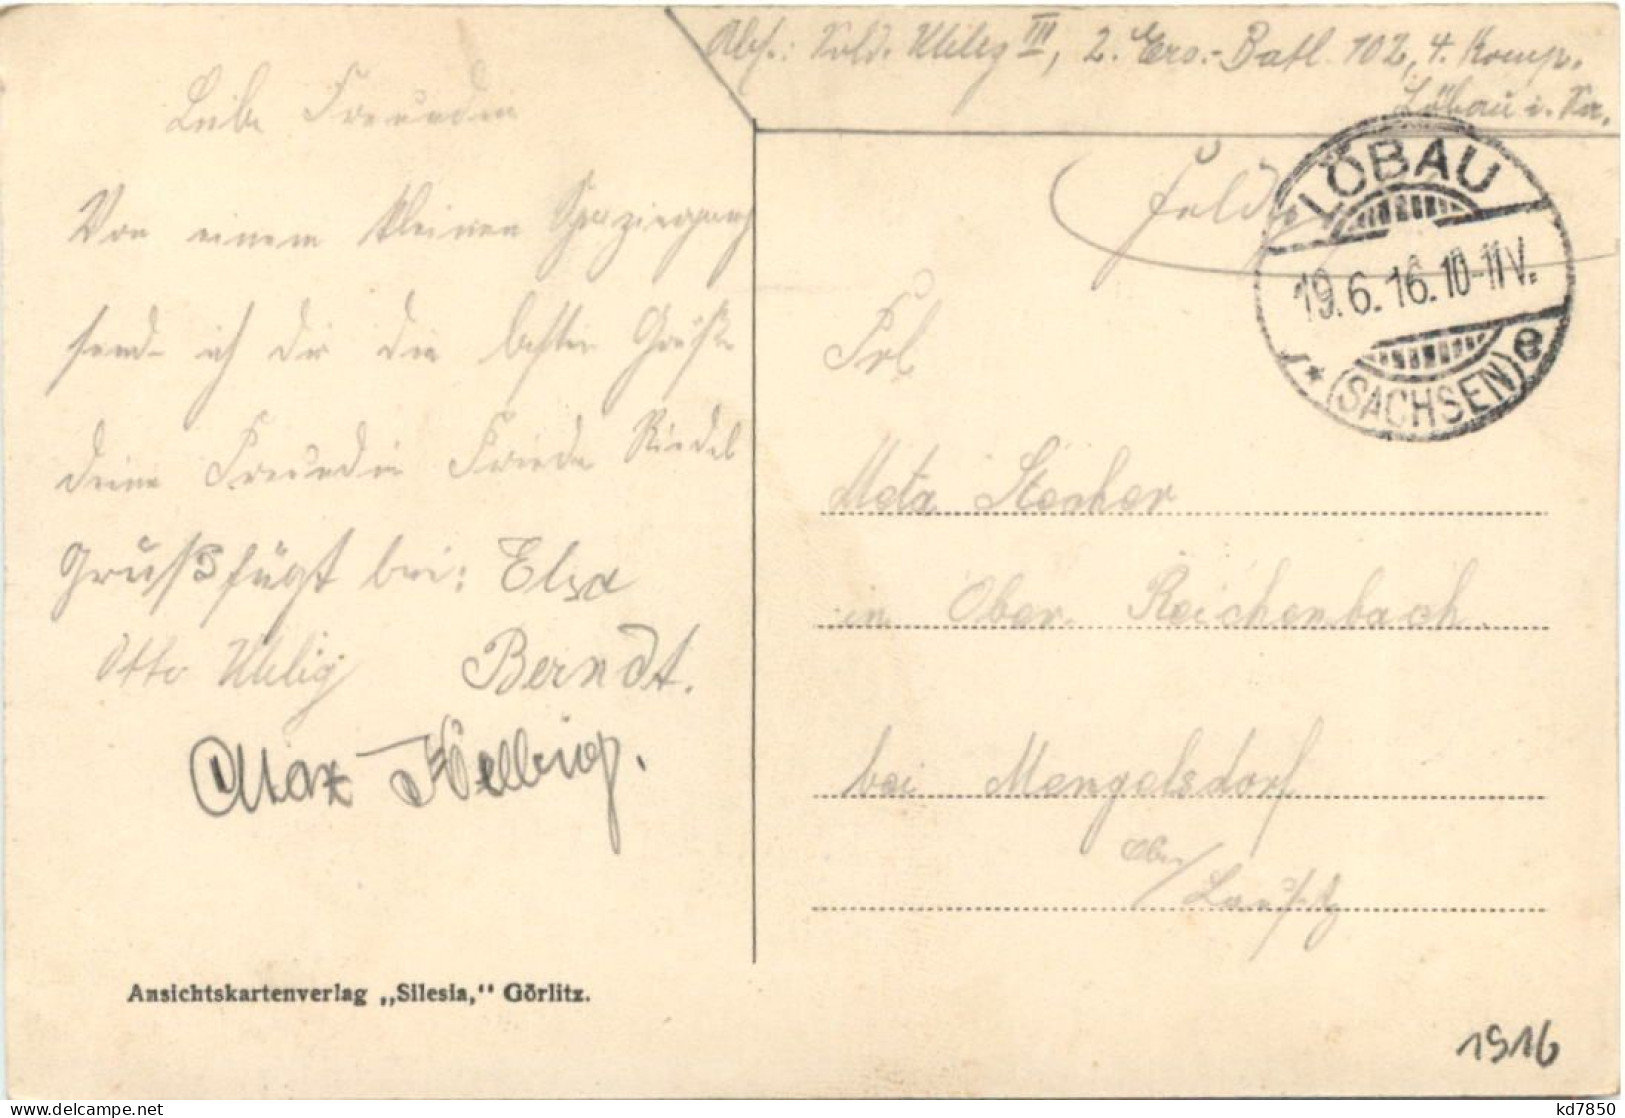 Abs.: Sold. Uhlig III, 2. Ers.-Batl. 102, 4. Komp.
Löbau i. Sa.
Liebe Freundin
Von einem kleinen Spaziergang
send ich dir die besten Grüße
deine Freundin Frieda Riedel
Gruß fügt bei: Elsa
Otto Uhlig Berndt.
Max Helbig.
Ansichtskartenverlag „Silesia," Görlitz.
LÖBAU
19.6.16.10-11V.
* (SACHSEN) e
Frl
Meta Stecher
in Ober Reichenbach
bei Mengelsdorf
Ober/
Lausitz
1916
kd7850